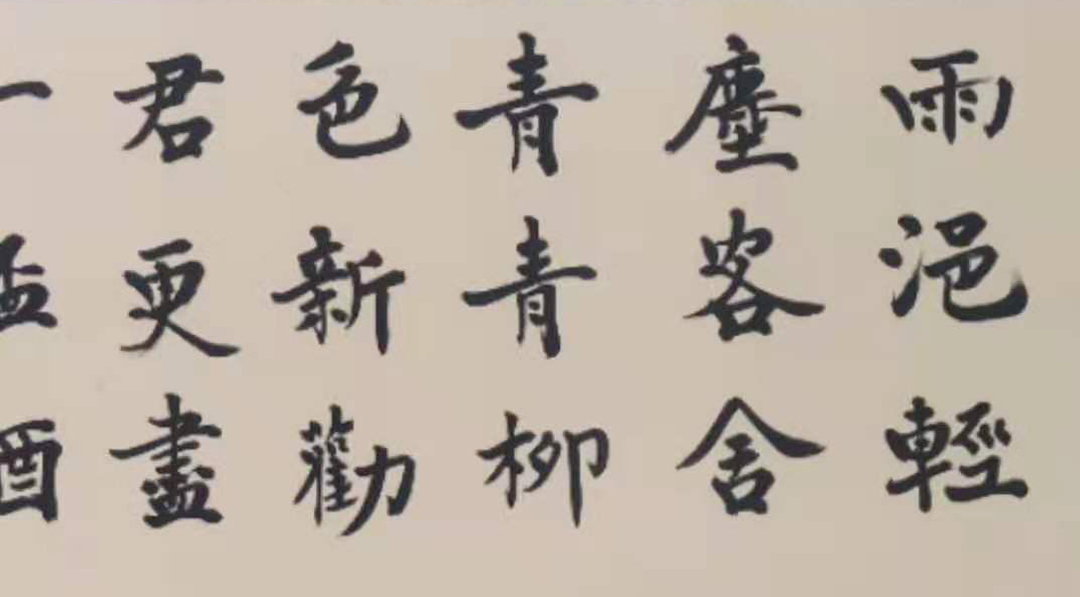 雨浥輕
塵客舍
青青柳
色新勸
君更盡
一盃酒